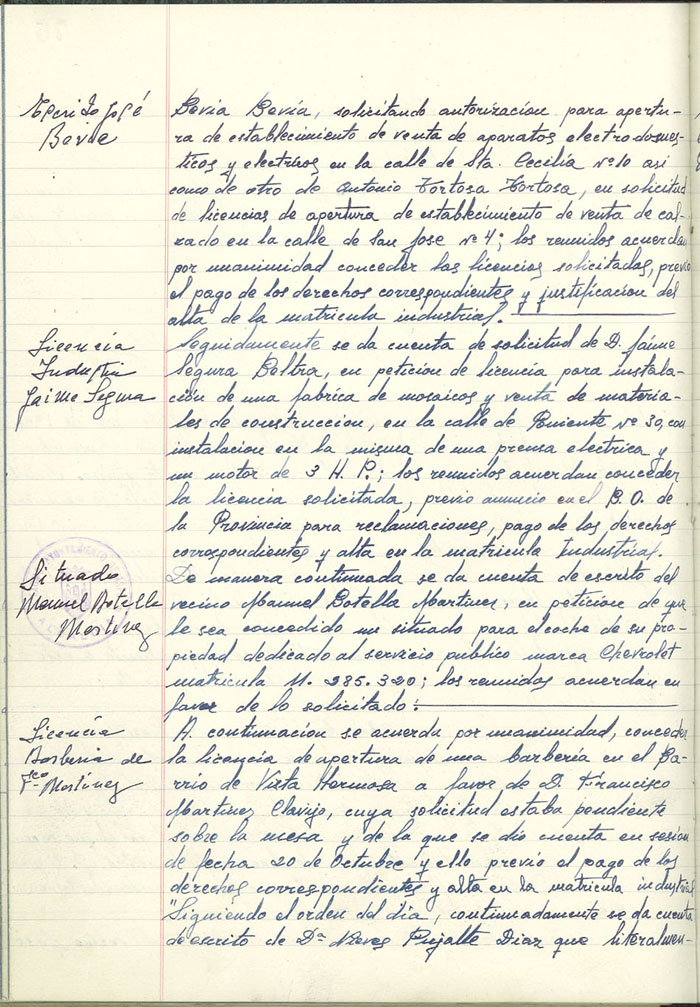 Escrito José
Bevia
Bevia Bevía, solicitando autorización para apertu-
ra de establecimiento de venta de aparatos electrodomes-
ticos y electricos en la calle de Sta. Cecilia nº 10 asi
como de otro de Antonio Tortosa Tortosa, en solicitud
de licencias de apertura de establecimiento de venta de cal-
zado en la calle de San Jose nº 4; los reunidos acuerdan
por unanimidad conceder las licencias solicitadas, previo
el pago de los derechos correspondientes y justificacion del
alta de la matricula industrial.
Licencia
Industria
Jaime Segura
Seguidamente se da cuenta de solicitud de D. Jaime
Segura Beltra, en peticion de licencia para instala-
ción de una fabrica de mosaicos y venta de materia-
les de construccion, en la calle de Poniente nº 30, con
instalacion en la misma de una prensa electrica y
un motor de 3 H.P.; los reunidos acuerdan conceder
la licencia solicitada, previo anuncio en el B.O. de
la Provincia para reclamaciones, pago de los derechos
correspondientes y alta en la matricula Industrial.
AYUNTAMIENTO
Situado
Manuel Botella
Martinez
De manera continuada se da cuenta de escrito del
vecino Manuel Botella Martinez, en peticion de que
le sea concedido un situado para el coche de su pro-
piedad dedicado al servicio publico marca Chevrolet
matricula M. 285.320; los reunidos acuerdan en
favor de lo solicitado.
Licencia
Barberia de
Fco Martínez
A continuacion se acuerda por unanimidad, conceder
la licencia de apertura de una barbería en el Ba-
rrio de Vista Hermosa a favor de D. Francisco
Martinez Clavijo, cuya solicitud estaba pendiente
sobre la mesa y de la que se dio cuenta en sesion
de fecha 20 de Octubre y ello previo el pago de los
derechos correspondientes y alta en la matricula industrial
"Siguiendo el orden del día, continuadamente se da cuenta
de escrito de Dª Nieves Pujalte Diaz que literalmen-